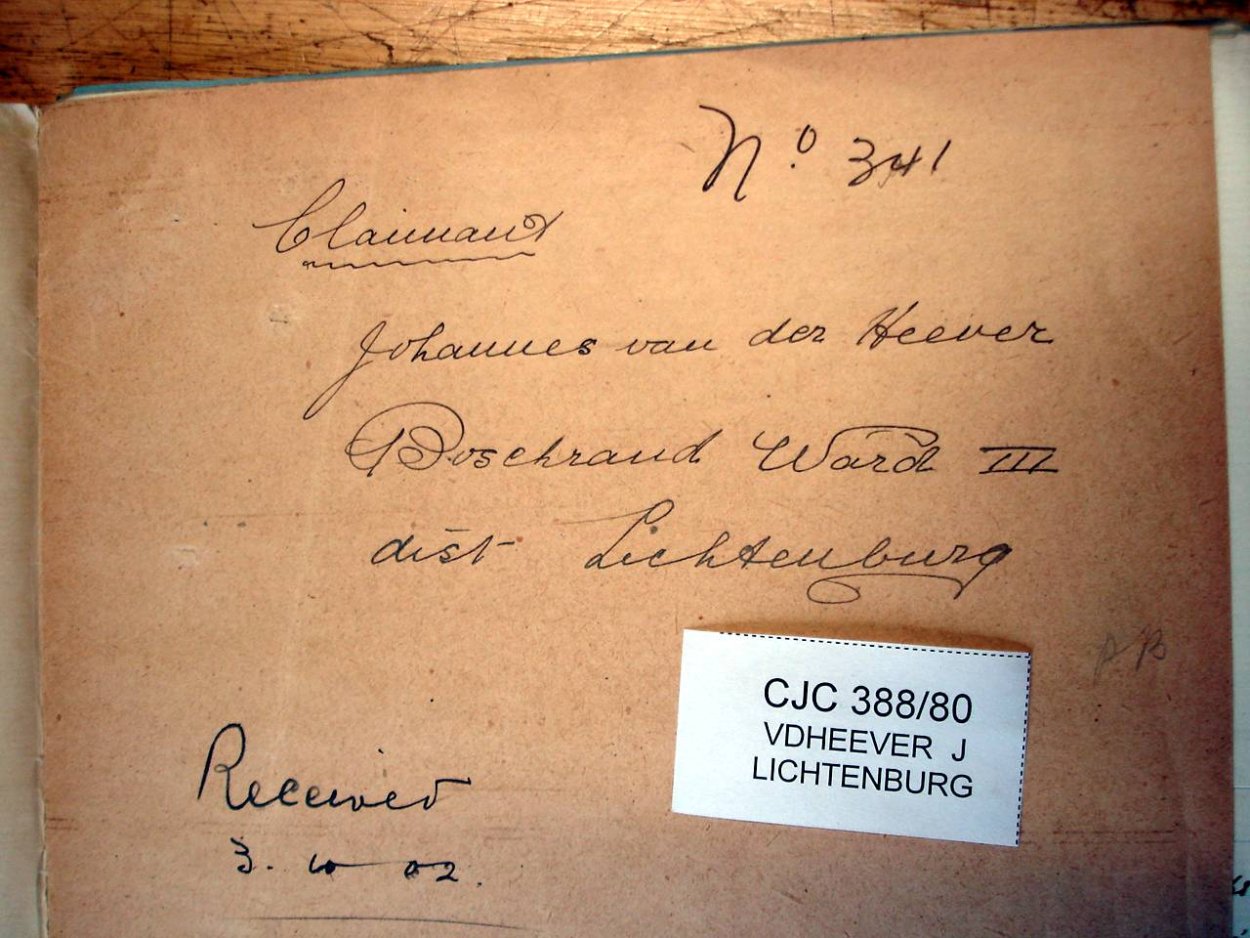 Nº 341
Claimant
Johannes van der Heever
Boschrand Ward III
dist Lichtenburg
CJC 388/80
VDHEEVER J
LICHTENBURG
Received
3. 10 02.